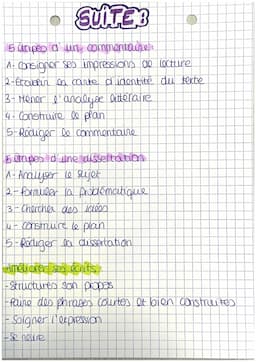 SUITE :
5 étapes d'un commentaire :
1- Consigner ses impressions de lecture
2- Etablir la carte d'identité du texte
3- Mener l'analyse littéraire
4- Construire le plan
5- Rédiger le commentaire
5 étapes d'une dissertation
1- Analyser le sujet
2- Formuler la problématique
3- Chercher des idées
4- Construire le plan
5- Rédiger la dissertation
Améliorer ses écrits
- Structurer son propos
- Faire des phrases courtes et bien construites
- Soigner l'expression
- Se relire